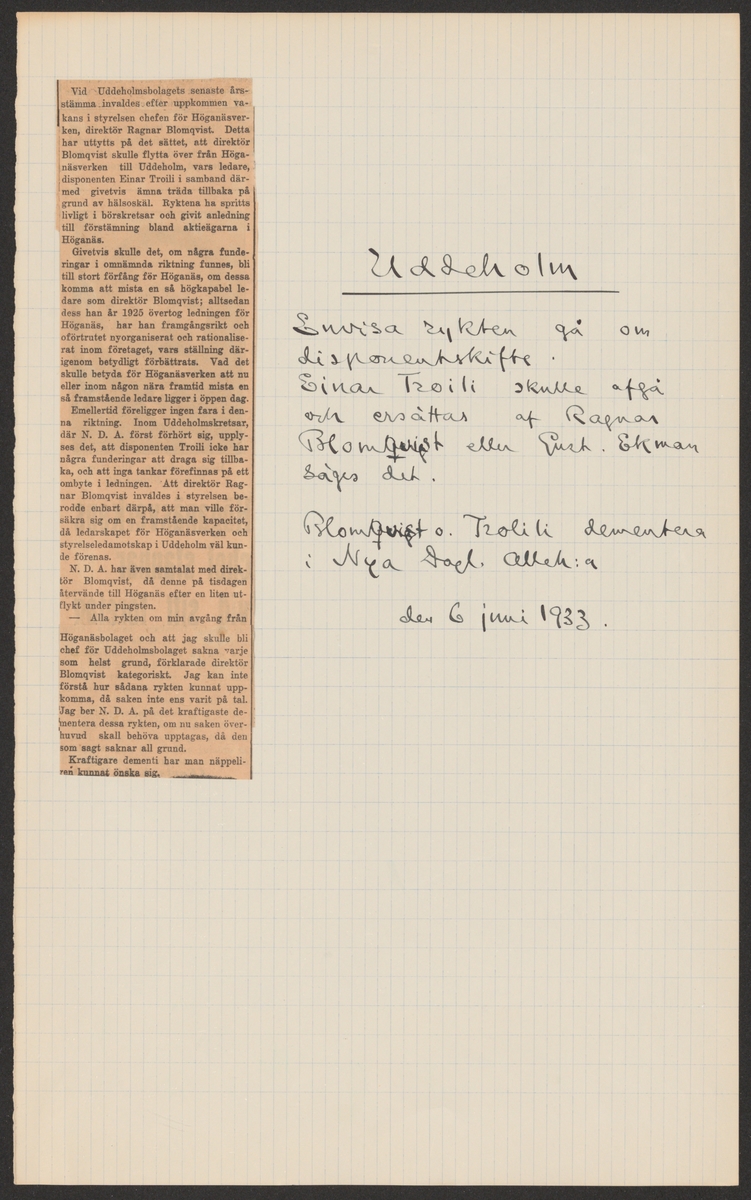 Vid Uddeholmsbolagets senaste års-
stämma invaldes efter uppkommen va-
kans i styrelsen chefen för Höganäsver-
ken, direktör Ragnar Blomqvist. Detta
har uttytts på det sättet, att direktör
Blomqvist skulle flytta över från Höga-
näsverken till Uddeholm, vars ledare,
disponenten Einar Troili i samband där-
med givetvis ämna träda tillbaka på
grund av hälsoskäl. Ryktena ha spritts
livligt i börskretsar och givit anledning
till förstämning bland aktieägarna i
Höganäs.
Givetvis skulle det, om några funde-
ringar i omnämnda riktning funnes, bli
till stort förfång för Höganäs, om dessa
komma att mista en så högkapabel le-
dare som direktör Blomqvist; alltsedan
dess han år 1925 övertog ledningen för
Höganäs, har han framgångsrikt och
oförtrutet nyorganiserat och rationalise-
rat inom företaget, vars ställning där-
igenom betydligt förbättrats. Vad det
skulle betyda för Höganäsverken att nu
eller inom någon nära framtid mista en
så framstående ledare ligger i öppen dag.
Emellertid föreligger ingen fara i den-
na riktning. Inom Uddeholmskretsar,
där N. D. A. först förhört sig, upply-
ses det, att disponenten Troili icke har
några funderingar att draga sig tillba-
ka, och att inga tankar förefinnas på ett
ombyte i ledningen. Att direktör Rag-
nar Blomqvist invaldes i styrelsen be-
rodde enbart därpå, att man ville för-
säkra sig om en framstående kapacitet,
då ledarskapet för Höganäsverken och
styrelseledamotskap i Uddeholm väl kun-
de förenas.
N. D. A. har även samtalat med direk-
tör Blomqvist, då denne på tisdagen
återvände till Höganäs efter en liten ut-
flykt under pingsten.
— Alla rykten om min avgång från
Höganäsbolaget och att jag skulle bli
chef för Uddeholmsbolaget sakna varje
som helst grund, förklarade direktör
Blomqvist kategoriskt. Jag kan inte
förstå hur sådana rykten kunnat upp-
komma, då saken inte ens varit på tal.
Jag ber N. D. A. på det kraftigaste de-
mentera dessa rykten, om nu saken över-
huvud skall behöva upptagas, då den
som sagt saknar all grund.
Kraftigare dementi har man näppeli-
gen kunnat önska sig.
Uddeholm
Envisa rykten gå om
disponentskifte.
Einar Troili skulle afgå
och ersättas af Ragnar
Blomqvist eller Gust. Ekman
säges det.
Blomqvist o. Troili dementera
i Nya Dagl. Alleh:a
den 6 juni 1933.